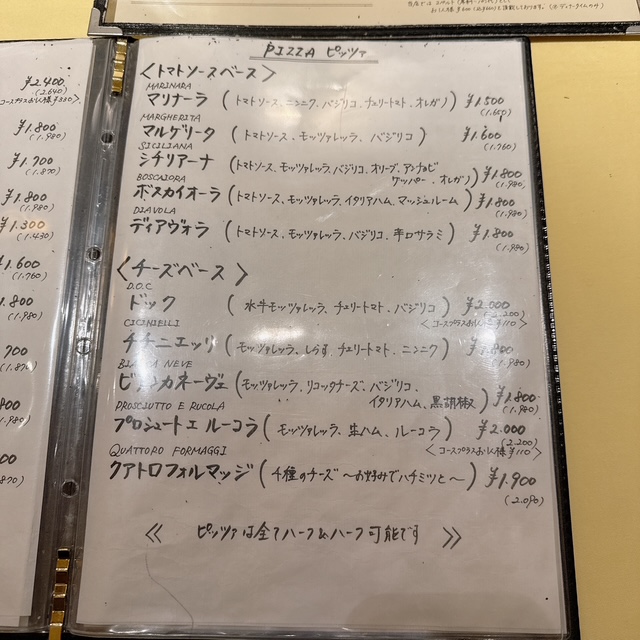 PIZZA ピッツァ
〈トマトソースベース〉
MARINARA
マリナーラ (トマトソース、ニンニク、バジリコ、チェリートマト、オレガノ) ¥1.500
(1.650)
MARGHERITA
マルゲリータ (トマトソース、モッツァレッラ、バジリコ) ¥1.600
(1.760)
SICILIANA
シチリアーナ (トマトソース、モッツァレッラ、バジリコ、オリーブ、アンチョビ
ケッパー、オレガノ) ¥1.800
(1.980)
BOSCAIORA
ボスカイオーラ (トマトソース、モッツァレッラ、イタリアハム、マッシュルーム) ¥1.800
(1.980)
DIAVOLA
ディアヴォラ (トマトソース、モッツァレッラ、バジリコ、辛口サラミ) ¥1.800
(1.980)
〈チーズベース〉
D.O.C
ドック (水牛モッツァレッラ、チェリートマト、バジリコ) ¥2.000
(2.200)
<コースプラスお一人様¥110>
CICINIELLI
チチニエッリ (モッツァレッラ、しらす、チェリートマト、ニンニク)
(1.980)
NEVE
(モッツァレッラ、リコッタチーズ、バジリコ、
イタリアハム、黒胡椒) ¥1.800
(1.980)
PROSCIUTTO E RUCOLA
プロシュート エ ルーコラ (モッツァレッラ、生ハム、ルーコラ) ¥2.000
(2.200)
<コースプラスお一人様¥110>
QUATTORO FORMAGGI
クアトロフォルマッジ (4種のチーズ 〜お好みでハチミツと〜) ¥1.900
(2.090)
《 ピッツァは全てハーフ&ハーフ可能です 》
¥2.400
(2.640)
コースプラスお一人様¥330>
¥1.800
(1.980)
¥1.700
(1.870)
¥1.800
(1.980)
¥1.300
(1.430)
¥1.600
(1.760)
(1.980)